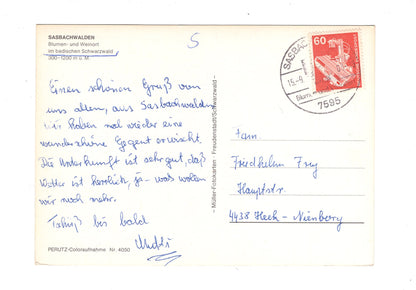 SASBACHWALDEN
Blumen- und Weinort
im badischen Schwarzwald
300-1200 m ü. M.
S
Einen schönen Gruß von
uns allen, aus Sasbachwalden
wir haben mal wieder eine
wunderschöne Gegend erwischt.
Die Unterkunft ist sehr gut, das
Wetter ist herrlich, ja was wollen
wir noch mehr.
bis bald
PERUTZ-Coloraufnahme Nr. 4050
- Müller-Fotokarten · Freudenstadt/Schwarzwald -
SASBACH
15.-9.
7595
60
Fam.
Friedhelm Frey
Hauptstr.
4438 Heek-Nienborg